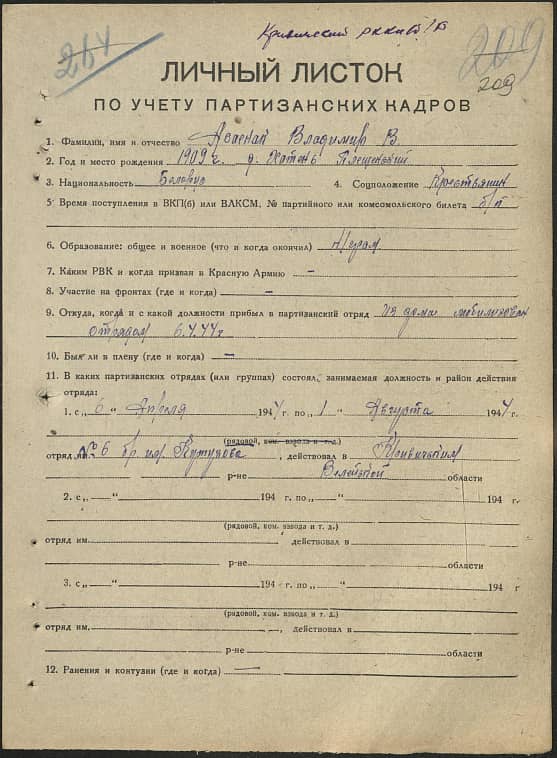 264
209
209
Кривичский
ЛИЧНЫЙ ЛИСТОК
ПО УЧЕТУ ПАРТИЗАНСКИХ КАДРОВ
1. Фамилия, имя и отчество Владимир В.
2. Год и место рождения 1909 г. д.
3. Национальность Белорус 4. Соцположение Крестьянин
5. Время поступления в ВКП(б) или ВЛКСМ, № партийного или комсомольского билета б/п
6. Образование: общее и военное (что и когда окончил) н/грам.
7. Каким РВК и когда призван в Красную Армию —
8. Участие на фронтах (где и когда) —
9. Откуда, когда и с какой должности прибыл в партизанский отряд из дома мобилизован
отрядом 6.4.44 г
10. Был ли в плену (где и когда) —
11. В каких партизанских отрядах (или группах) состоял, занимаемая должность и район действия
отряда:
1. с „ 6 “ Апреля 1944 г. по „ 1 “ Августа 1944 г.
(рядовой, ком. взвода и т. д.)
отряд им. №6 бр. им. Кутузова, действовал в Кривичским
р-не Вилейской области
2. с „ “ 194 г. по „ “ 194 г.
(рядовой, ком. взвода и т. д.)
отряд им. действовал в
р-не области
3. с „ “ 194 г. по „ “ 194 г
(рядовой, ком. взвода и т. д.)
отряд им. , действовал в
р-не области
12. Ранения и контузии (где и когда) —